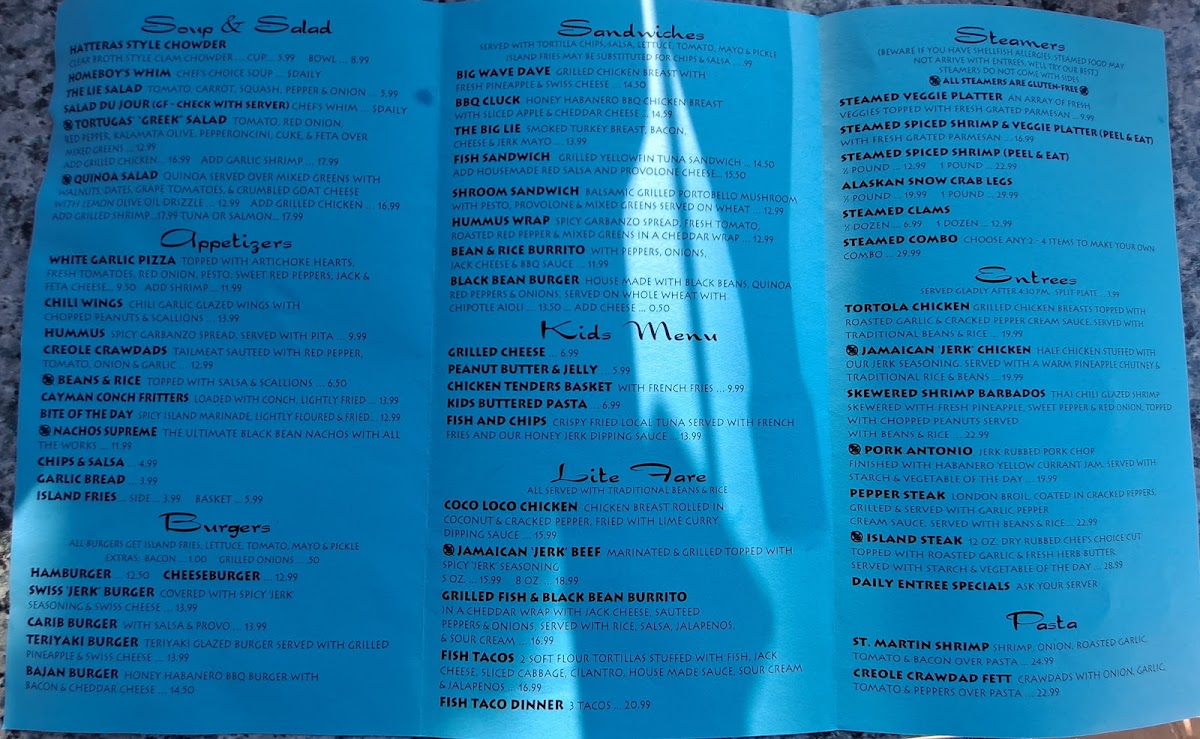 Soup & Salad
HATTERAS STYLE CHOWDER
CLEAR BROTH STYLE CLAM CHOWDER.... CUP... 5.99 BOWL ... 8.99
HOMEBOY'S WHIM CHEF'S CHOICE SOUP ... $DAILY
THE LIE SALAD TOMATO, CARROT, SQUASH, PEPPER & ONION ... 5.99
SALAD DU JOUR (GF - CHECK WITH SERVER) CHEF'S WHIM ... $DAILY
TORTUGAS' "GREEK" SALAD TOMATO, RED ONION,
RED PEPPER, KALAMATA OLIVE, PEPPERONCINI, CUKE, & FETA OVER
MIXED GREENS ... 12.99
ADD GRILLED CHICKEN... 16.99 ADD GARLIC SHRIMP ... 17.99
QUINOA SALAD QUINOA SERVED OVER MIXED GREENS WITH
WALNUTS, DATES, GRAPE TOMATOES, & CRUMBLED GOAT CHEESE
WITH LEMON OLIVE OIL DRIZZLE ... 12.99 ADD GRILLED CHICKEN ... 16.99
ADD GRILLED SHRIMP...17.99 TUNA OR SALMON... 17.99
Appetizers
WHITE GARLIC PIZZA TOPPED WITH ARTICHOKE HEARTS,
FRESH TOMATOES, RED ONION, PESTO, SWEET RED PEPPERS, JACK &
FETA CHEESE... 9.50 ADD SHRIMP ... 11.99
CHILI WINGS CHILI GARLIC GLAZED WINGS WITH
CHOPPED PEANUTS & SCALLIONS ... 13.99
HUMMUS SPICY GARBANZO SPREAD, SERVED WITH PITA ... 9.99
CREOLE CRAWDADS TAILMEAT SAUTEED WITH RED PEPPER,
TOMATO, ONION & GARLIC ... 12.99
BEANS & RICE TOPPED WITH SALSA & SCALLIONS ... 6.50
CAYMAN CONCH FRITTERS LOADED WITH CONCH, LIGHTLY FRIED ... 13.99
BITE OF THE DAY SPICY ISLAND MARINADE, LIGHTLY FLOURED & FRIED... 12.99
NACHOS SUPREME THE ULTIMATE BLACK BEAN NACHOS WITH ALL
THE WORKS ... 11.99
CHIPS & SALSA ... 4.99
GARLIC BREAD ... 3.99
ISLAND FRIES ... SIDE ... 3.99 BASKET ... 5.99
Burgers
ALL BURGERS GET ISLAND FRIES, LETTUCE, TOMATO, MAYO & PICKLE
EXTRAS: BACON ... 1.00 GRILLED ONIONS ... .50
HAMBURGER ... 12.50 CHEESEBURGER ... 12.99
SWISS 'JERK' BURGER COVERED WITH SPICY 'JERK'
SEASONING & SWISS CHEESE ... 13.99
CARIB BURGER WITH SALSA & PROVO ... 13.99
TERIYAKI BURGER TERIYAKI GLAZED BURGER SERVED WITH GRILLED
PINEAPPLE & SWISS CHEESE ... 13.99
BAJAN BURGER HONEY HABANERO BBQ BURGER WITH
BACON & CHEDDAR CHEESE ... 14.50
Sandwiches
SERVED WITH TORTILLA CHIPS, SALSA, LETTUCE, TOMATO, MAYO & PICKLE
ISLAND FRIES MAY BE SUBSTITUTED FOR CHIPS & SALSA ... .99
BIG WAVE DAVE GRILLED CHICKEN BREAST WITH
FRESH PINEAPPLE & SWISS CHEESE ... 14.50
BBQ CLUCK HONEY HABANERO BBQ CHICKEN BREAST
WITH SLICED APPLE & CHEDDAR CHEESE ... 14.59
THE BIG LIE SMOKED TURKEY BREAST, BACON,
CHEESE & JERK MAYO ... 13.99
FISH SANDWICH GRILLED YELLOWFIN TUNA SANDWICH ... 14.50
ADD HOUSEMADE RED SALSA AND PROVOLONE CHEESE... 15.50
SHROOM SANDWICH BALSAMIC GRILLED PORTOBELLO MUSHROOM
WITH PESTO, PROVOLONE & MIXED GREENS SERVED ON WHEAT ... 12.99
HUMMUS WRAP SPICY GARBANZO SPREAD, FRESH TOMATO,
ROASTED RED PEPPER & MIXED GREENS IN A CHEDDAR WRAP ... 12.99
BEAN & RICE BURRITO WITH PEPPERS, ONIONS,
JACK CHEESE & BBQ SAUCE ... 11.99
BLACK BEAN BURGER HOUSE MADE WITH BLACK BEANS, QUINOA
RED PEPPERS & ONIONS, SERVED ON WHOLE WHEAT WITH
CHIPOTLE AIOLI ... 13.50 ... ADD CHEESE ... 0.50
Kids Menu
GRILLED CHEESE ... 6.99
PEANUT BUTTER & JELLY ... 5.99
CHICKEN TENDERS BASKET WITH FRENCH FRIES ... 9.99
KIDS BUTTERED PASTA ... 6.99
FISH AND CHIPS CRISPY FRIED LOCAL TUNA SERVED WITH FRENCH
FRIES AND OUR HONEY JERK DIPPING SAUCE ... 13.99
Lite Fare
ALL SERVED WITH TRADITIONAL BEANS & RICE
COCO LOCO CHICKEN CHICKEN BREAST ROLLED IN
COCONUT & CRACKED PEPPER, FRIED WITH LIME CURRY
DIPPING SAUCE ... 15.99
JAMAICAN 'JERK' BEEF MARINATED & GRILLED TOPPED WITH
SPICY 'JERK' SEASONING
5 OZ. ... 15.99 8 OZ. ... 18.99
GRILLED FISH & BLACK BEAN BURRITO
IN A CHEDDAR WRAP WITH JACK CHEESE, SAUTEED
PEPPERS & ONIONS, SERVED WITH RICE, SALSA, JALAPENOS,
& SOUR CREAM ... 16.99
FISH TACOS 2 SOFT FLOUR TORTILLAS STUFFED WITH FISH, JACK
CHEESE, SLICED CABBAGE, CILANTRO, HOUSE MADE SAUCE, SOUR CREAM
& JALAPENOS ... 16.99
FISH TACO DINNER 3 TACOS ... 20.99
Steamers
(BEWARE IF YOU HAVE SHELLFISH ALLERGIES: STEAMED FOOD MAY
NOT ARRIVE WITH ENTREES, WE'LL TRY OUR BEST.)
STEAMERS DO NOT COME WITH SIDES
ALL STEAMERS ARE GLUTEN-FREE
STEAMED VEGGIE PLATTER AN ARRAY OF FRESH
VEGGIES TOPPED WITH FRESH GRATED PARMESAN ... 9.99
STEAMED SPICED SHRIMP & VEGGIE PLATTER (PEEL & EAT)
WITH FRESH GRATED PARMESAN ... 16.99
STEAMED SPICED SHRIMP (PEEL & EAT)
½ POUND ... 12.99 1 POUND ... 22.99
ALASKAN SNOW CRAB LEGS
½ POUND ... 19.99 1 POUND ... 29.99
STEAMED CLAMS
½ DOZEN ... 6.99 1 DOZEN ... 12.99
STEAMED COMBO CHOOSE ANY 2 - 4 ITEMS TO MAKE YOUR OWN
COMBO ... 29.99
Entrees
SERVED GLADLY AFTER 4:30 P.M. SPLIT PLATE ... 3.99
TORTOLA CHICKEN GRILLED CHICKEN BREASTS TOPPED WITH
ROASTED GARLIC & CRACKED PEPPER CREAM SAUCE. SERVED WITH
TRADITIONAL BEANS & RICE ... 19.99
JAMAICAN 'JERK' CHICKEN HALF CHICKEN STUFFED WITH
OUR JERK SEASONING. SERVED WITH A WARM PINEAPPLE CHUTNEY &
TRADITIONAL RICE & BEANS ... 19.99
SKEWERED SHRIMP BARBADOS THAI CHILI GLAZED SHRIMP
SKEWERED WITH FRESH PINEAPPLE, SWEET PEPPER & RED ONION, TOPPED
WITH CHOPPED PEANUTS SERVED
WITH BEANS & RICE ... 22.99
PORK ANTONIO JERK RUBBED PORK CHOP
FINISHED WITH HABANERO YELLOW CURRANT JAM, SERVED WITH
STARCH & VEGETABLE OF THE DAY ... 19.99
PEPPER STEAK LONDON BROIL, COATED IN CRACKED PEPPERS,
GRILLED & SERVED WITH GARLIC PEPPER
CREAM SAUCE. SERVED WITH BEANS & RICE ... 22.99
ISLAND STEAK 12 OZ. DRY RUBBED CHEF'S CHOICE CUT
TOPPED WITH ROASTED GARLIC & FRESH HERB BUTTER
SERVED WITH STARCH & VEGETABLE OF THE DAY ... 28.99
DAILY ENTREE SPECIALS ASK YOUR SERVER
Pasta
ST. MARTIN SHRIMP SHRIMP, ONION, ROASTED GARLIC,
TOMATO & BACON OVER PASTA ... 24.99
CREOLE CRAWDAD FETT CRAWDADS WITH ONION, GARLIC,
TOMATO & PEPPERS OVER PASTA ... 22.99